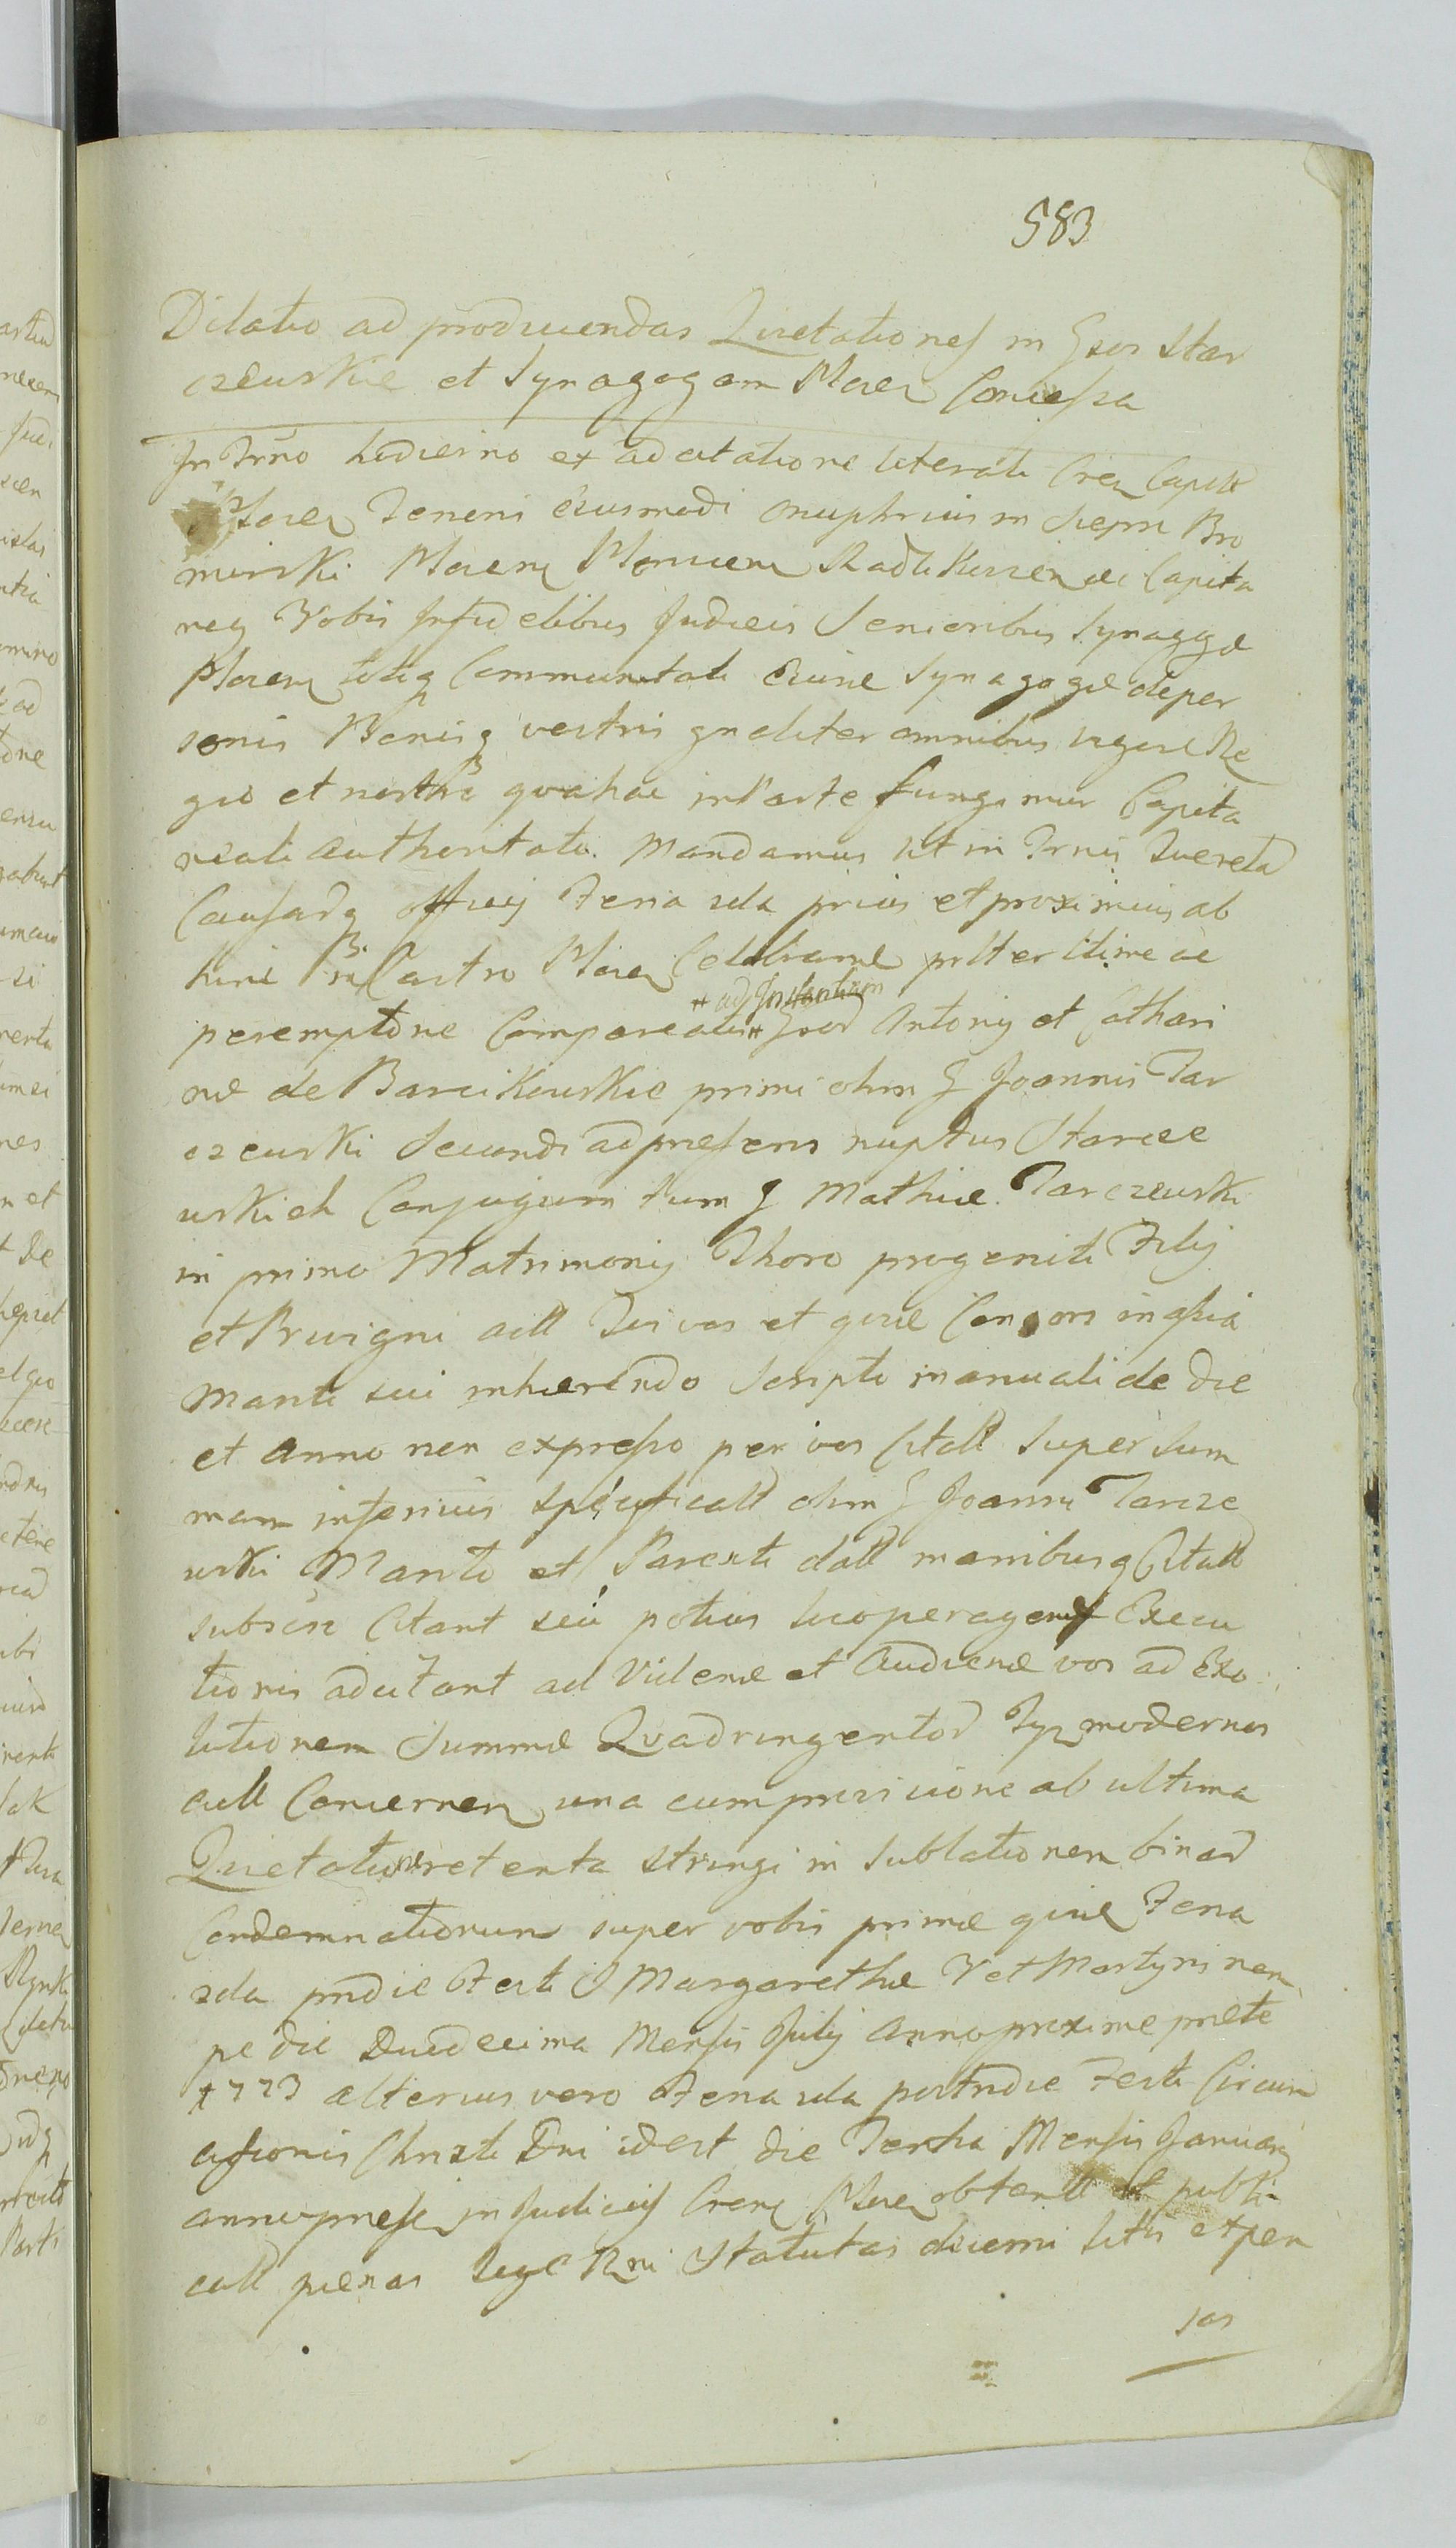 583
Dilatio ad producendas Quietationes in Gsos Star
czewskie et Synagogam Plocen Concessa
In Trno hodierno ex adcitatione literali Cren Capitt
Plocen Tenoris eiusmodi Onuphrius in Sieprc Bro
mirski Plocen Plonscen Radti Kiszen Capita
neus Vobis Infidelibus Judeis Senioribus Synaggae
Plocen totiq Communitati Eiusne Synagogae de per
sonis Bonisq vestris gnaliter omnibus vigore Re
gia et nostra qua hac in Parte fungimur Capita
neali authoritate. Mandamus ut in Trnis Querelad
Causarq officij Feria 2da prius et proximius ab
hinc in Castro Plocen Celebrand pltter litime ac
peremptorie Compareatis ad Instantiam Gsor Antonij et Cathari
nae de Barcikowskie primi olim G Joannis Tar
czewski Secundi ad praesens nuptus Starcze
wskich Conjugum tum G Mathiae Tarczewski
in primo Matrimonij Thoro progeniti Filij
et Privigni actt Qui vos et quae Consors in assia
Mariti sui inhaerendo Scripto manuali de die
et Anno non expresso per vos Citatt Super Sum
mam inferius specificatt olim G Joanni Tarcze
wski Marito et Parenti datt manibusq Citatt
subscr Citant seu potius loco peragend Execu
tionis adcitant ad Vidend et Audiend vos ad Exo
lutionem Summae Quadringentor Tyz modernos
actt Concernen una cum provisione ab ultima
Quietatione retenta stringi in Sublationem binar
Condemnationum super vobis primae quae Feria
2da pridie Festi S Margarethae V et Martyris nem
pe die Duodecima Mensis Julij Anno proxime praete
1773 alterius vero Feria 2da postridie Festi Circum
cisionis Christi Dni id est die Tertia Mensis Januarij
anno praese in Judicijs Cren Plocen obtentt et publi
catt paenas lege Rni Statutas decerni litis expen
sas